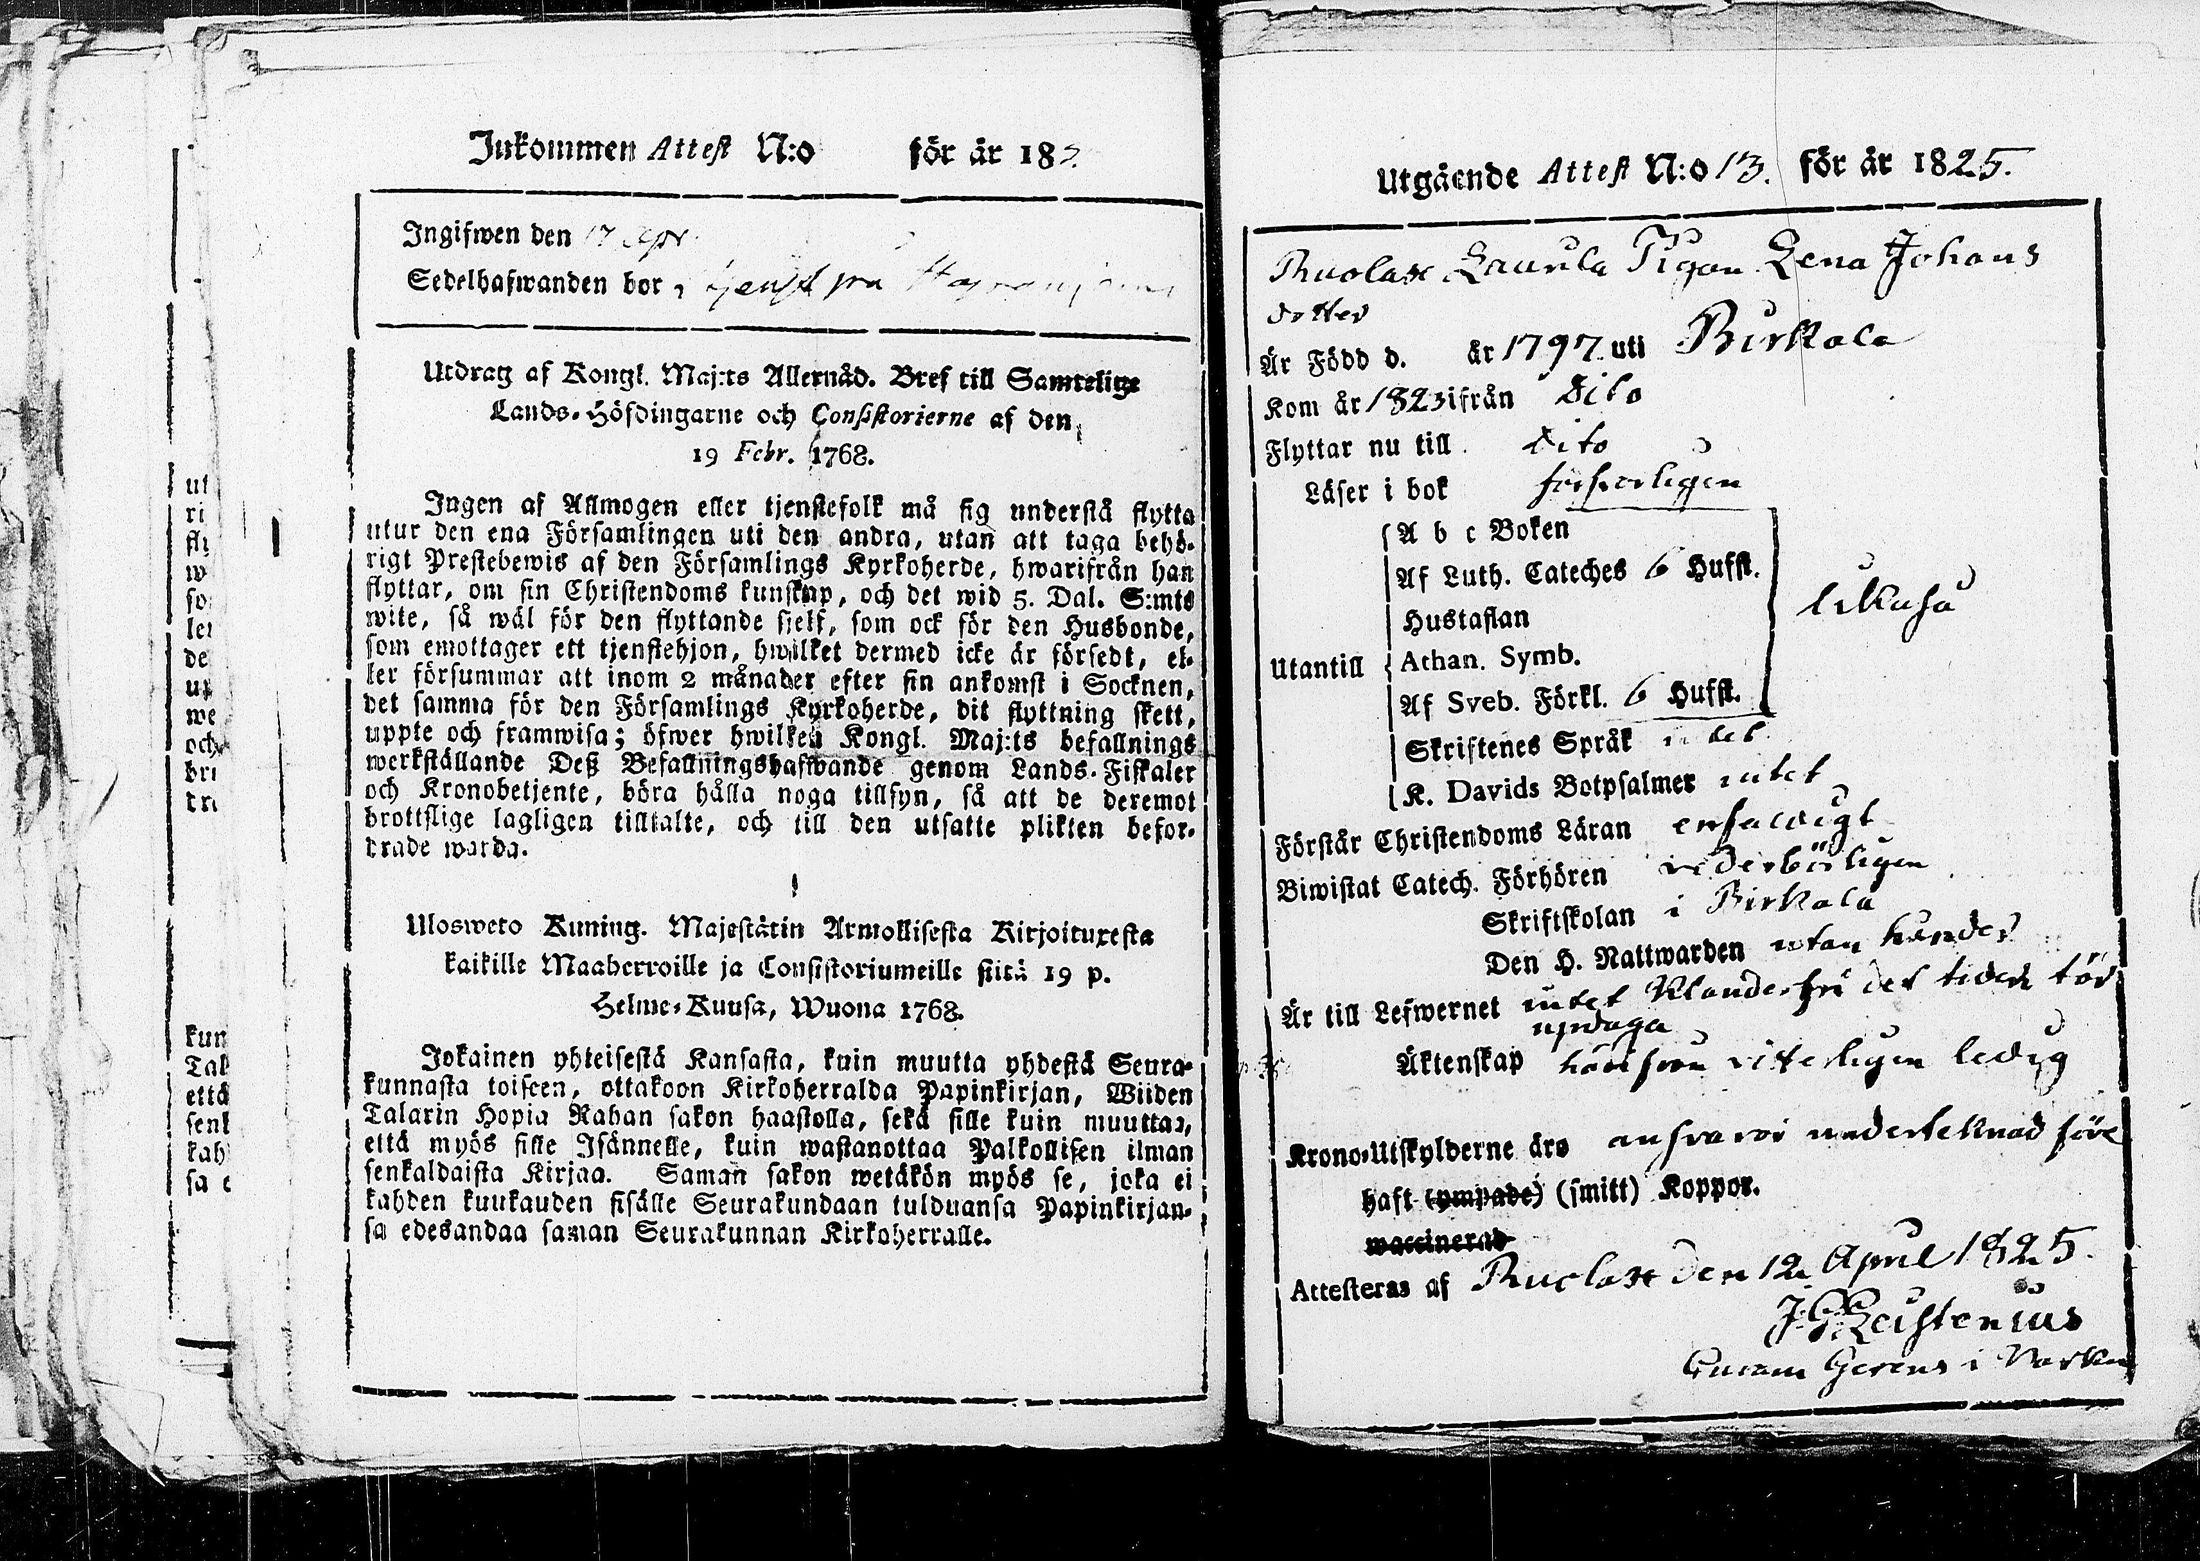 Inkommen Attest N:o för år 182
Ingifwen den 17 Apr.
Sedelhafwanden bor
Utdrag af Kongl. Maj:ts Allernåd. Bref till Samtelige
Lands-Höfdingarne och Consistorierne af den
19 Febr. 1768.
Ingen af Allmogen eller tjenstefolk må sig understå flytta
utur den ena Församlingen uti den andra, utan att taga behö-
rigt Prestebewis af den Församlings Kyrkoherde, hwarifrån han
flyttar, om sin Christendoms kunskap, och det wid 5. Dal. S:mts
wite, så wäl för den flyttande sjelf, som ock för den Husbonde,
som emottager ett tjenstehjon, hwilket dermed icke är försedt, el-
ler försummar att inom 2 månader efter sin ankomst i Socknen,
det samma för den Församlings Kyrkoherde, dit flyttning skett,
uppte och framwisa; öfwer hwilken Kongl. Maj:ts befallnings
werkställande Deß Befallningshafwande genom Lands-Fiskaler
och Kronobetjente, böra hålla noga tillsyn, så att de deremot
brottslige lagligen tilltalte, och till den utsatte plikten befor-
drade warda.
Ulosweto Kuning. Majestätin Armollisesta Kirjoituxesta
kaikille Maaherroille ja Consistoriumeille siitä 19 p.
Helme-Kuusa, Wuona 1768.
Jokainen yhteisestä Kansasta, kuin muutta yhdestä Seura-
kunnasta toiseen, ottakoon Kirkoherralda Papinkirjan, Wiiden
Talarin Hopia Rahan sakon haastolla, sekä sille kuin muuttaa,
että myös sille Isännelle, kuin wastanottaa Palkollisen ilman
senkaldaista Kirjaa. Saman sakon wetäkön myös se, joka ei
kahden kuukauden sisälle Seurakundaan tulduansa Papinkirjan-
sa edesandaa saman Seurakunnan Kirkoherralle.
Utgående Attest N:o 13. för år 1825.
Ruolax Laurila Pigan Lena Johans
dotter
Är Född d. år 1797 uti Birkala
Kom år 1823 ifrån dito
Flyttar nu till dito
Läser i bok försvarligen
A b c Boken
Af Luth. Cateches 6 Hufst.
Hustaflan
likaså
Utantill Athan. Symb.
Af Sveb. Förkl. 6 Hufst.
Skriftenes Språk intet
K. Davids Botpsalmer intet
Förstår Christendoms Läran enfaldigt
Biwistat Catech. Förhören wederbörligen
Skriftskolan i Birkala
Den H. Nattwarden utan hinder
Är till Lefwernet intet Klanderfri det tiden tör
updaga
Äktenskap härifrån witterligen ledig
Krono-Utskylderne äro answarar underteknad före
haft (ympade) (smitt) Koppor.
waccinerad
Attesteras af Ruolax den 12 April 1825.
J G Leistenius
Curam Gerens i